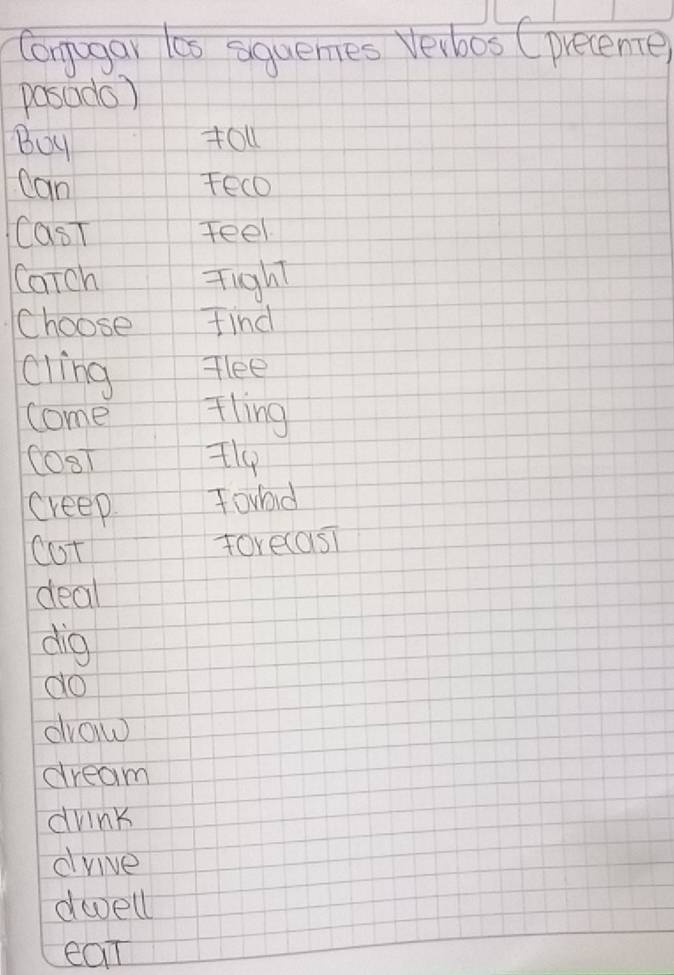 Conjugar los siguentes verbos (precente,
pasado)
Buy Foll
Can Feco
Cast Feel
Catch Fight
Choose Find
Cling Flee
Come Fling
Cost Fly
Creep. Forbid
Cut Forecast
deal
dig
do
draw
dream
drink
drive
dwell
eat